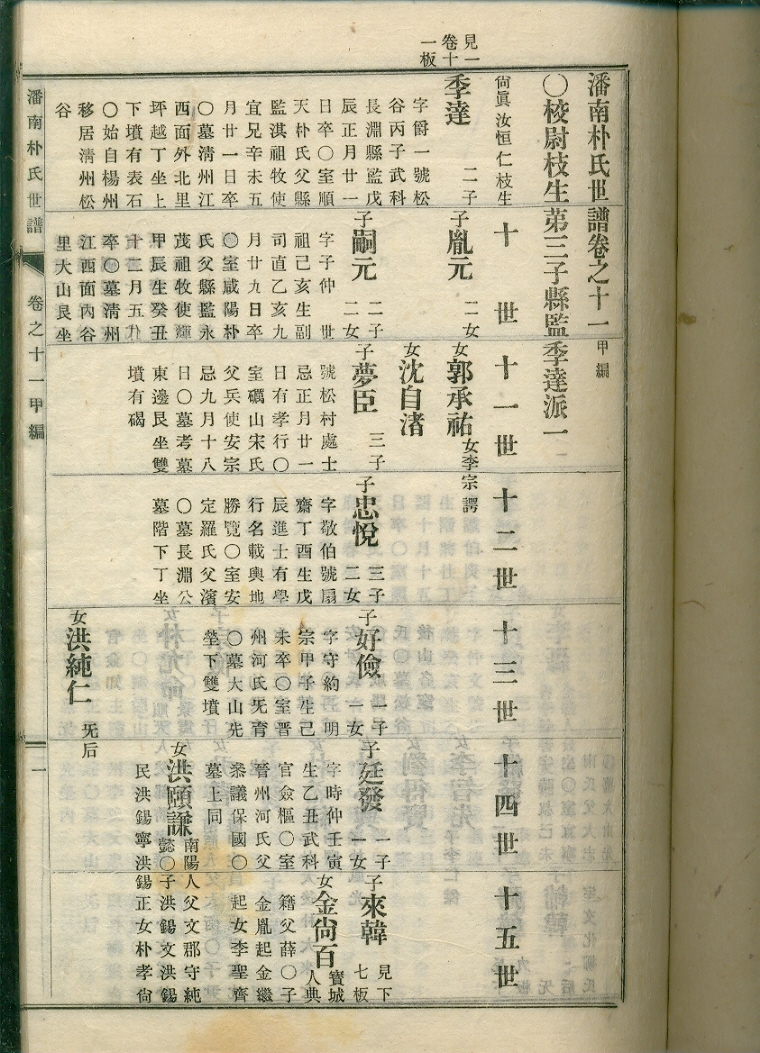 見一
卷十
一板
潘南朴氏世譜卷之十一甲編
〇校尉枝生第三子縣監季達派一
尙眞汝恒仁枝生
十世
十一世
十二世
十三世
十四世
十五世
季達
二子
字爵一號松
谷丙子武科
長淵縣監戊
辰正月廿一
日卒〇室順
天朴氏父縣
監淇祖牧使
宜兄辛未五
月廿一日卒
〇墓淸州江
西面外北里
坪越丁坐上
下墳有表石
〇始自楊州
移居淸州松
谷
子胤元
二女
子嗣元
二子
二女
字子仲世
祖己亥生副
司直乙亥九
月廿九日卒
〇室咸陽朴
氏父縣監永
茂祖牧使
甲辰生癸丑
十二月五日
卒〇墓淸州
江西面內谷
里大山艮坐
女郭承祐
女李宗諤
女沈自渚
子夢臣
三子
號松村處士
忌正月廿一
日有孝行〇
室礪山宋氏
父兵使安宗
忌九月十八
日〇墓考墓
東邊艮坐雙
墳有碣
子忠悅
三子
二女
字敬伯號扇
齋丁酉生戊
辰進士有學
行名載輿地
勝覽〇室安
定羅氏父濱
〇墓長淵公
墓階下丁坐
子好儉
一子
一女
字守約明
宗甲子生己
未卒〇室晋
州河氏旡育
〇墓大山先
塋下雙墳
女洪純仁
旡后
子廷發
一子
一女
字時仲壬寅
生乙丑武科
官僉樞〇室
晉州河氏父
叅議保國〇
墓上同
女洪頤謙
南陽人父文郡守純
懿〇子洪錫文洪錫
民洪錫寧洪錫正女朴孝尙
子來韓
見下
七板
女金尙百
寶城
人典
籍父薛〇子
金胤起金繼
起女李聖齊
潘南朴氏世譜
卷之十一甲編
一